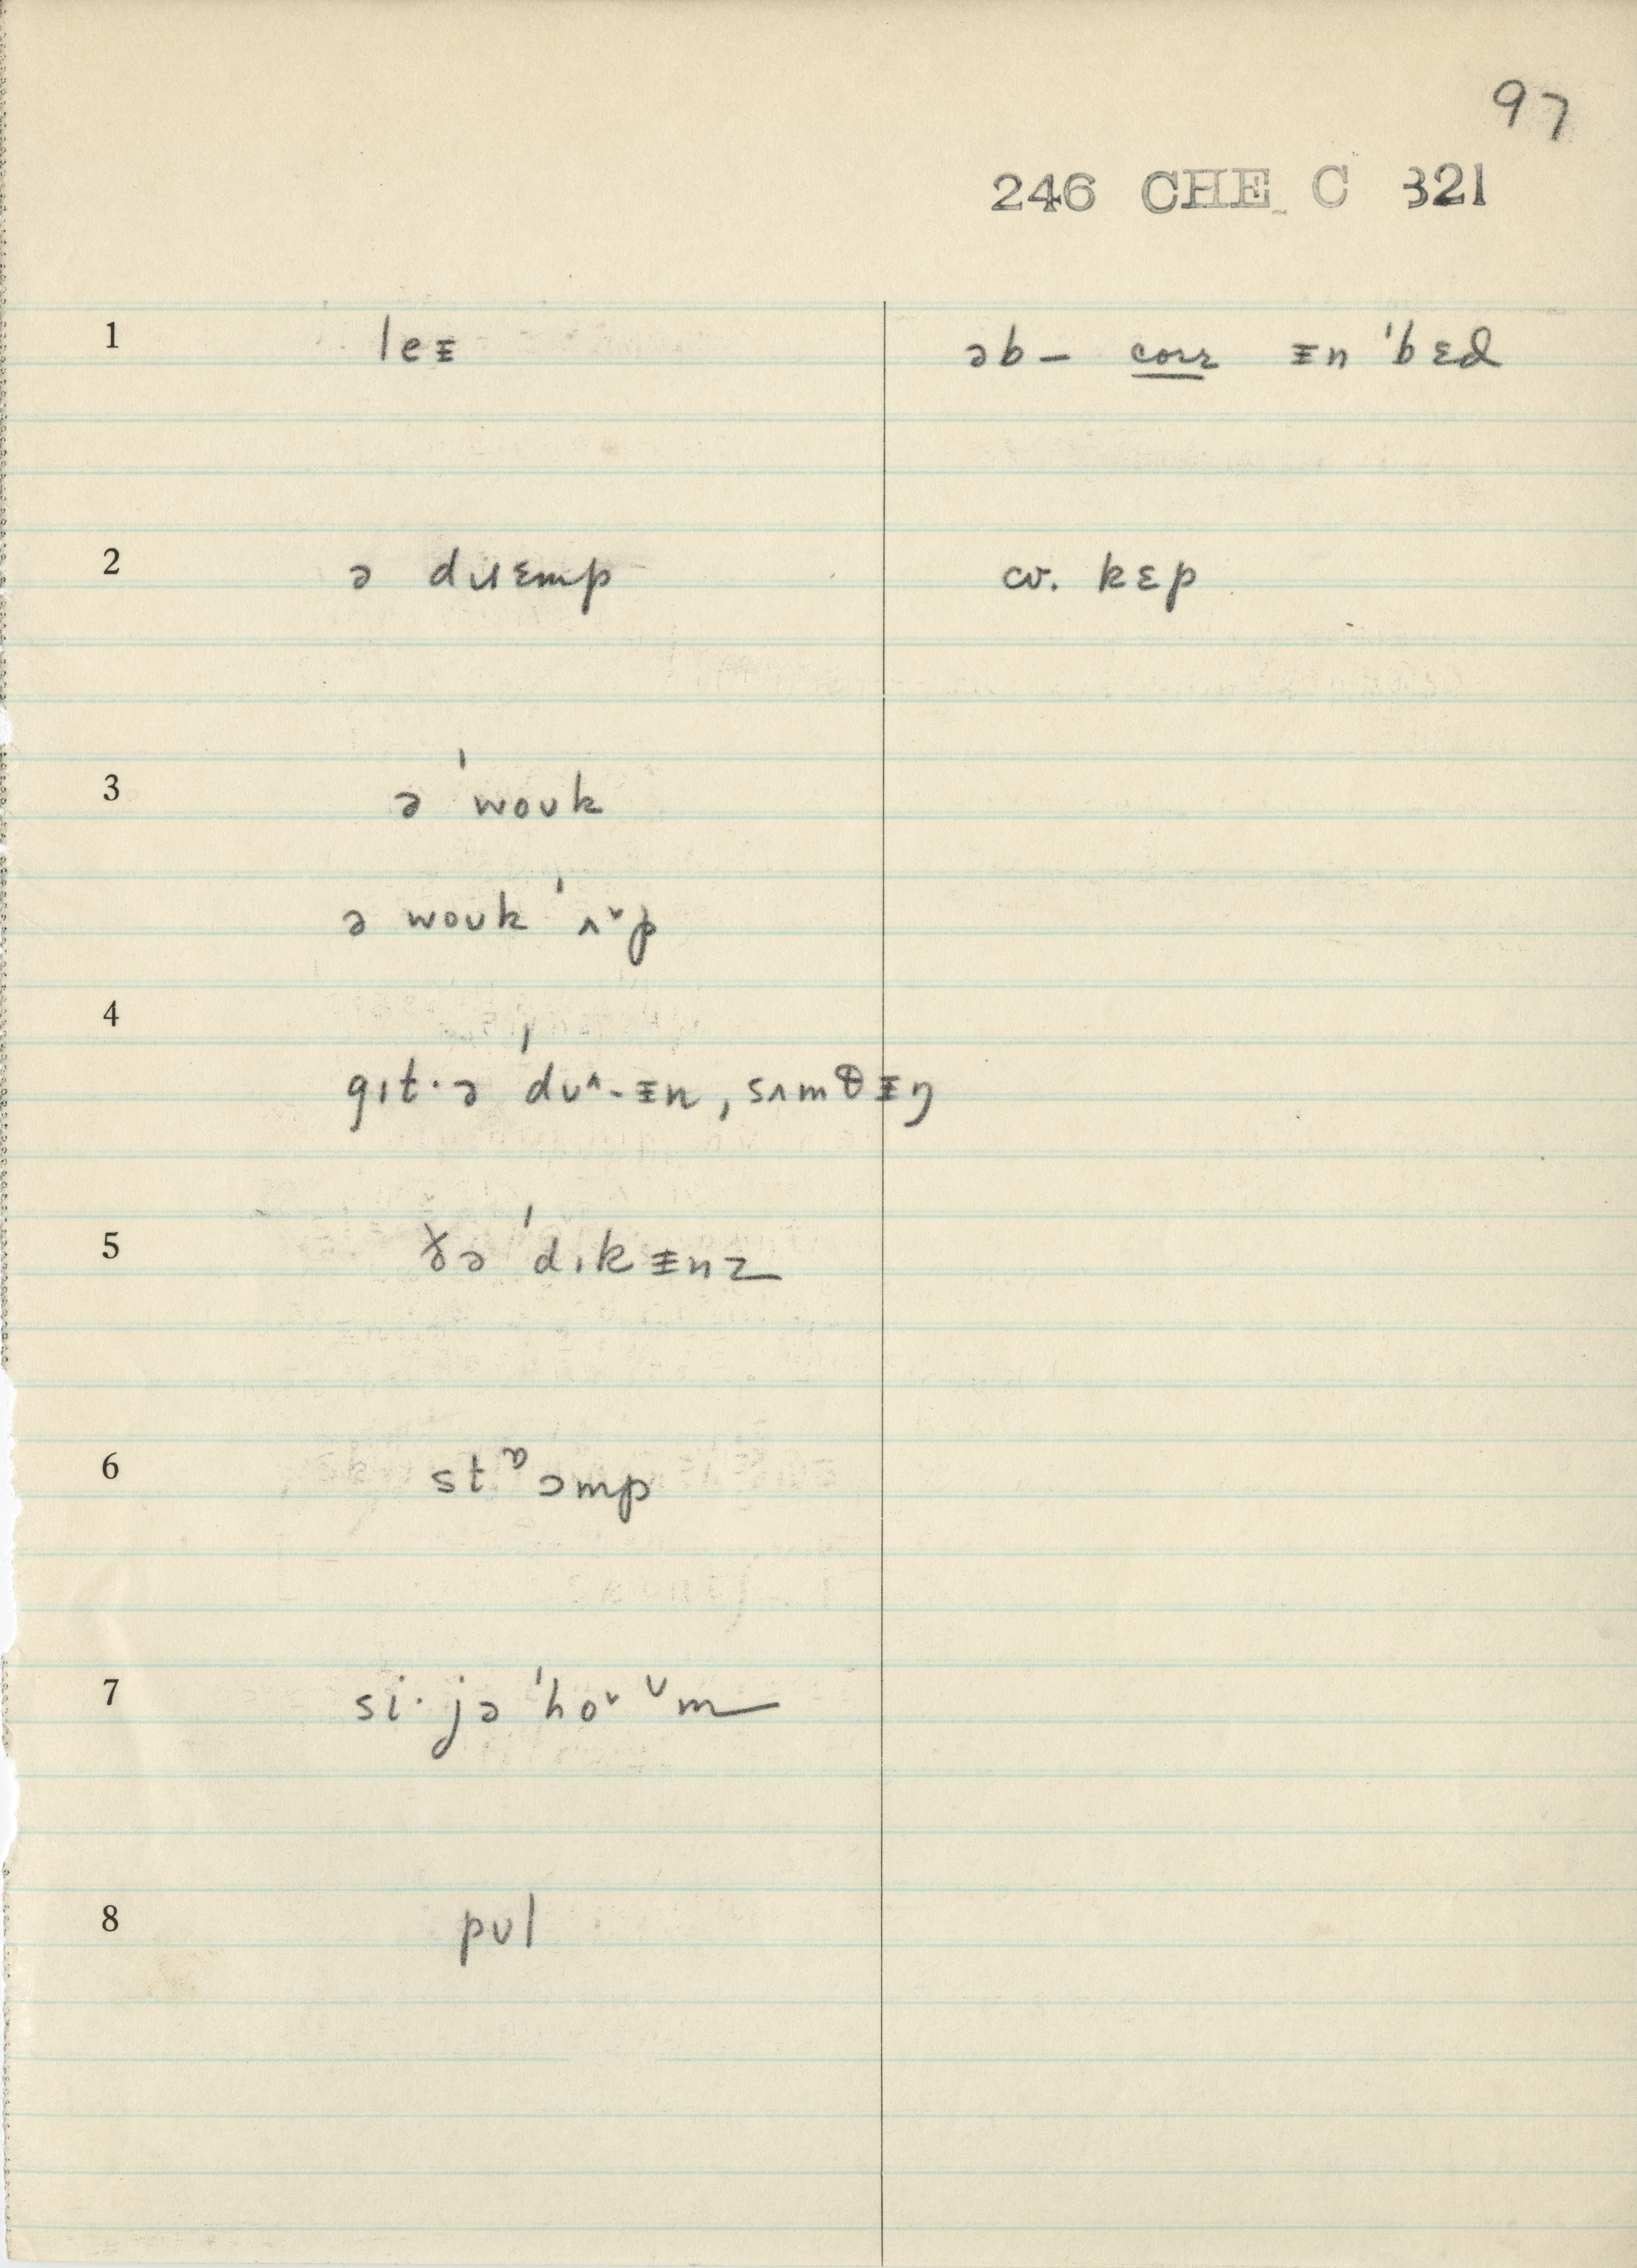 97
246 CHE C 321
1 leᵻ əb – corr ᵻn ˈbɛd
2 ə dɹɛmp cv. kɛp
3 ə ˈwoʊk
ə woʊk ˈʌ˅p
4
gɪt·ə ˈdu^-ᵻn, sʌmθᵻŋ
5 ðə ˈdɪkᵻnz
6 stᶛɔmp
7 si·jə ˈho˅ ᶷm
8 pʊl